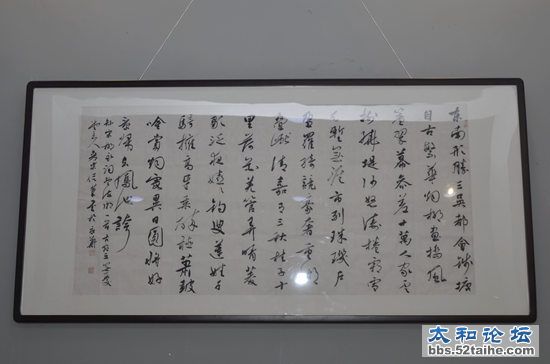 東南形勝三吳都會錢塘
自古繁華煙柳畫橋風
簾翠幕參差十萬人家雲
樹繞堤沙怒濤捲霜雪
天塹無涯市列珠璣戶
盈羅綺競豪奢重湖
疊巘清嘉有三秋桂子十
里荷花羌管弄晴菱
歌泛夜嬉嬉釣叟蓮娃千
騎擁高牙乘醉聽簫鼓
吟賞煙霞異日圖將好
景歸去鳳池誇
太和论坛
bbs.52taihe.com